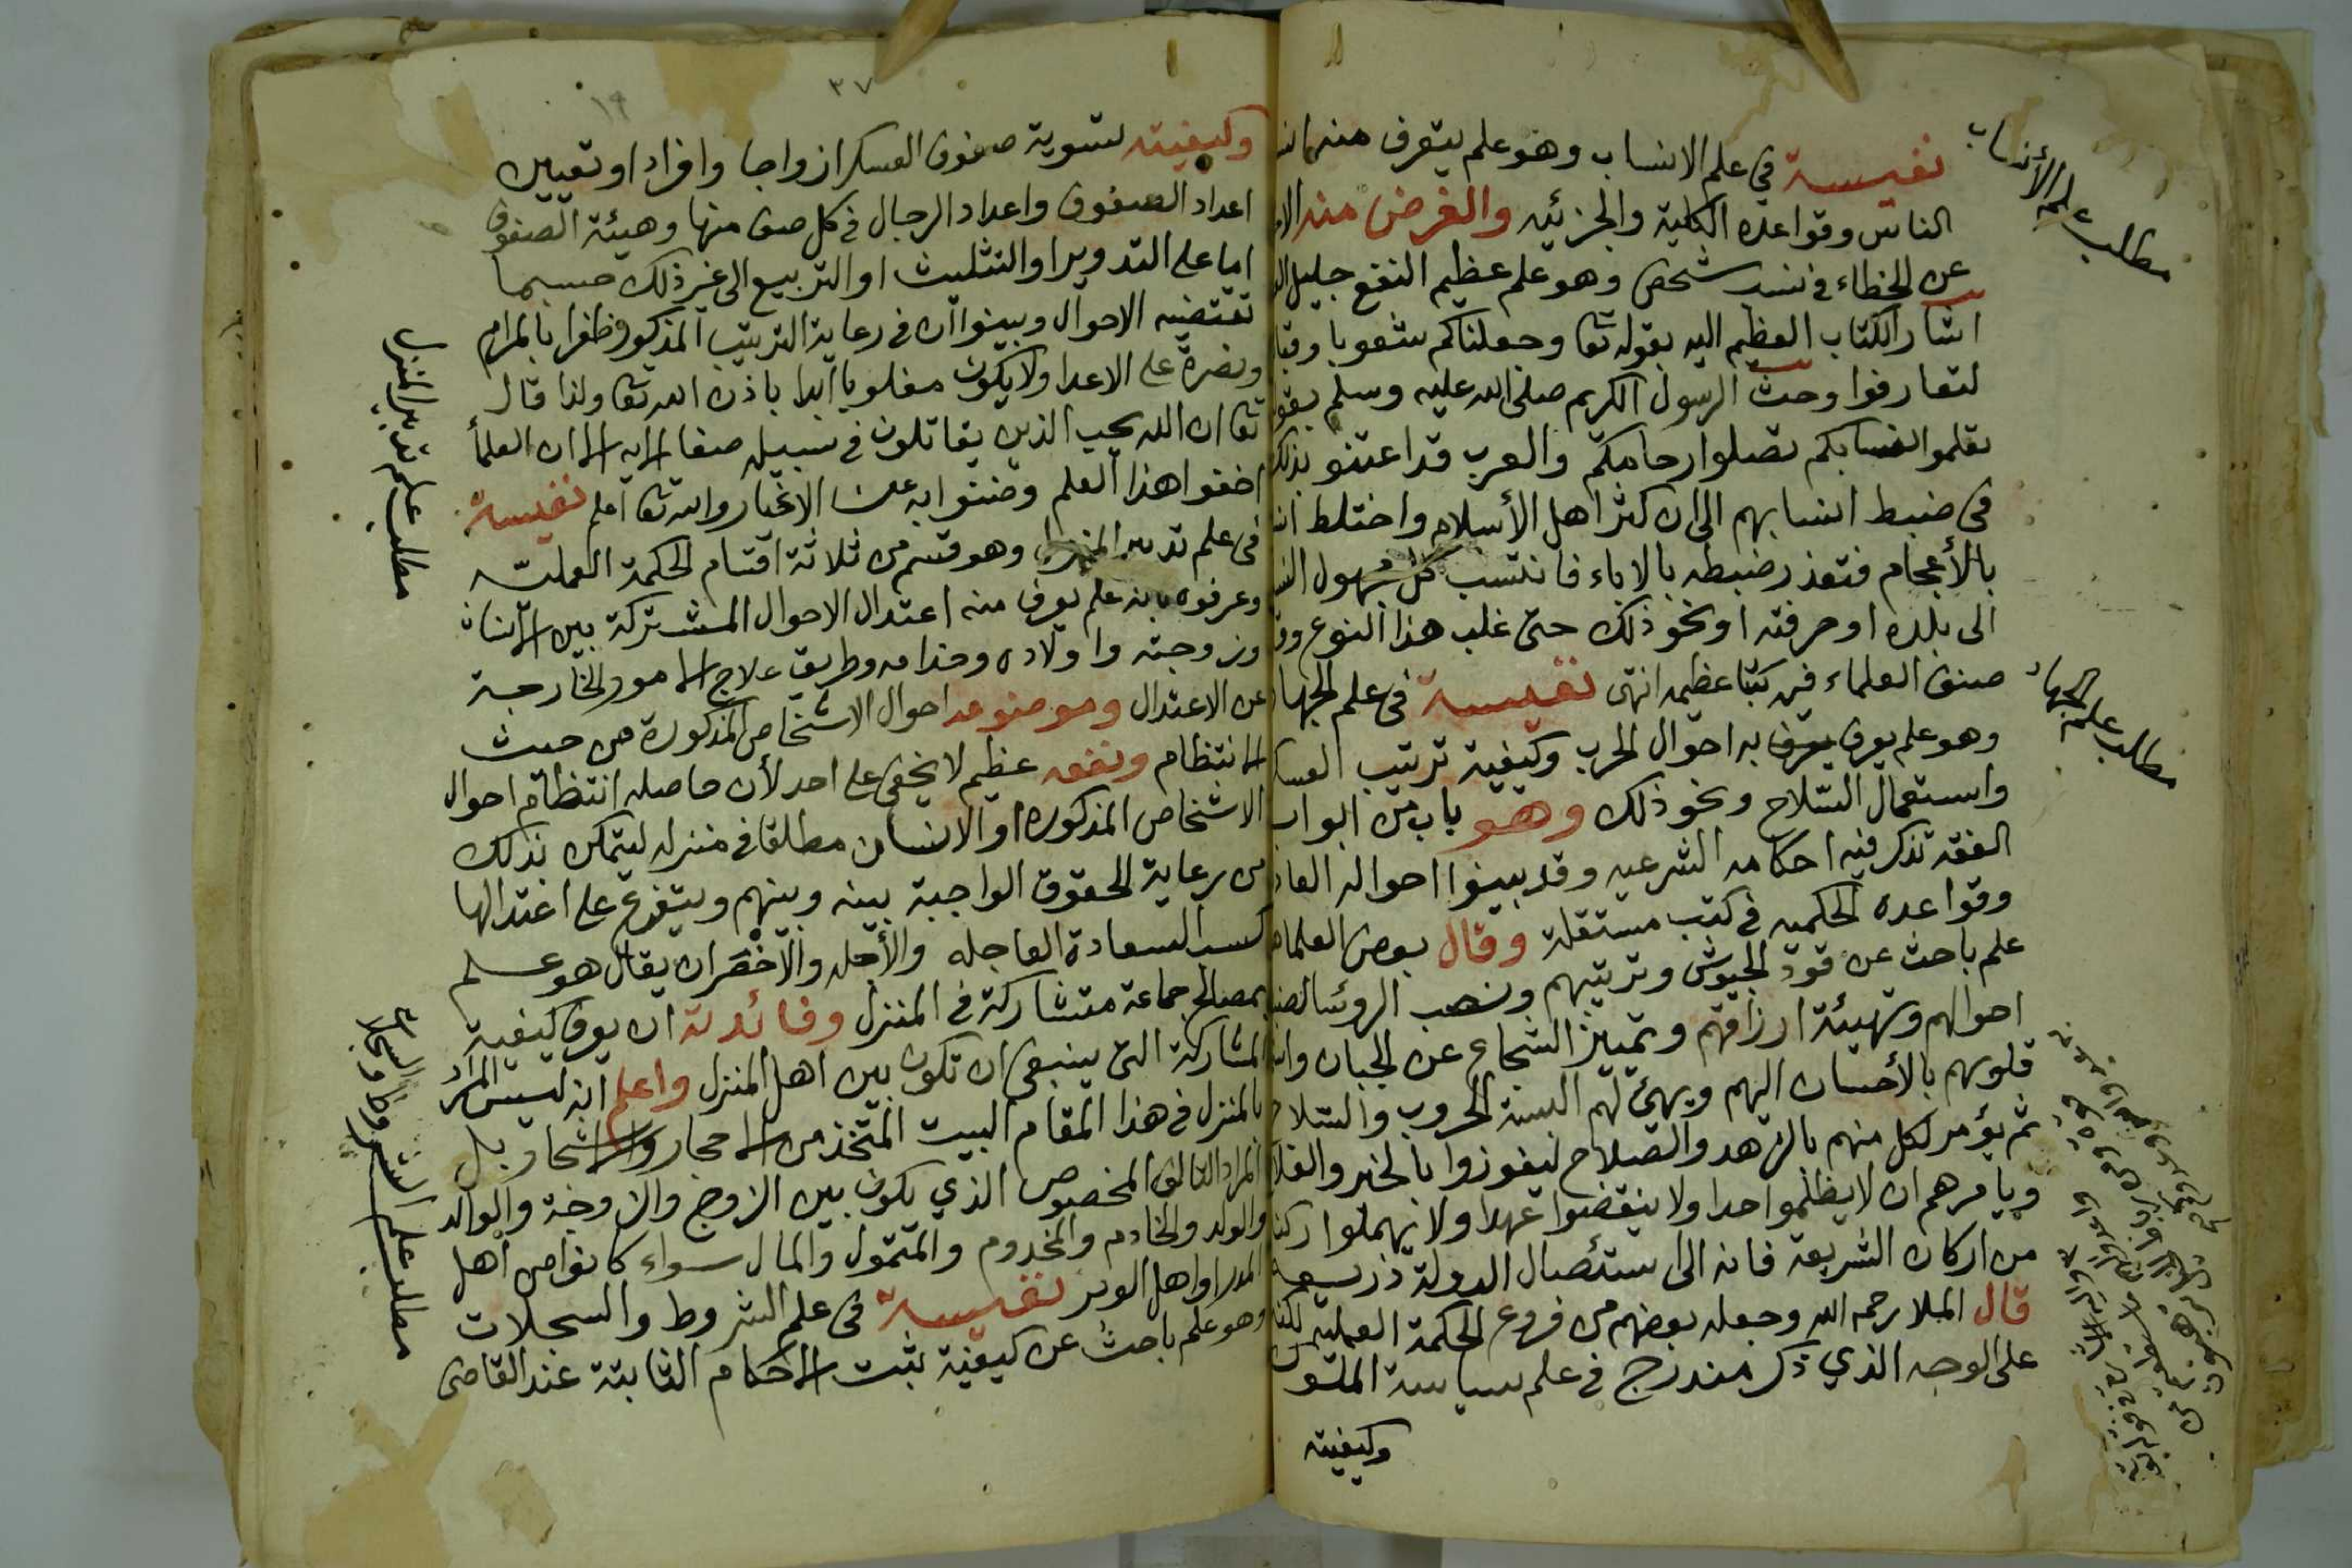 نفيسة في علم الانساب وهو علم يتعرف منه
الناس وقواعده الكلية والجزئيه والغرض منه
عن الخطاء في نسب شخص وهو علم عظيم النفع جليل
اشار الكتاب العظيم اليه بقوله تعا وجعلناكم شعوبا
لتعارفوا وحث الرسول الكريم صلى الله عليه وسلم
تعلموا انسابكم تصلوا ارحامكم والعرب قد اعتنو
في ضبط انسابهم الى ان كثر اهل الأسلام واختلط
بالأعجام فتعذر ضبطه بالاباء فانتسب كل مجهول
الى بلده او حرفته او نحو ذلك حتى غلب هذا النوع
صنف العلماء فيه كتبا عظيمه انتهى نفيسة في علم
مطلب علم الأنساب
مطلب علم الجهاد
وهو علم يعرف يعرف به احوال الحرب وكيفية ترتيب
واستعمال السلاح ونحو ذلك وهو باب من ابواب
الفقه تذكر فيه احكامه الشرعيه وقد بينوا احواله
وقواعده الحكميه في كتب مستقلة وقال بعض
علم باحث عن قود الجيوش وترتيبهم ونصب الروئسا
احوالهم وتهيئة ارزاقهم وتمييز الشجاع عن الجبان
قلوبهم بالأحسان اليهم ويهيئ لهم البسة الحروب
ثم يؤمر لكل منهم بالزهد والصلاح ليفوزوا بالخير
ويامرهم ان لا يظلموا احدا ولا ينقضوا عهدا ولا يهملوا ركنا
من اركان الشريعة فانه الى استئصال الدولة ذريعه
قال الملا رحمه الله وجعله بعضهم من فروع الحكمة العمليه
على الوجه الذي ذكر مندرج في علم سياسة الملوك
وكيفيته
٣٧
١٩
وكيفيته تسوية صفوف العسكر ازواجا وافرادا وتعيين
اعداد الصفوف واعداد الرجال في كل صف منها وهيئة الصفوف
اما على التدوير او التثليث او التربيع الى غير ذلك حسبما
تقتضيه الاحوال وبينوا ان في رعاية الترتيب المذكور ظفرا بالمرام
ونصرة على الاعدا ولا يكون مغلوبا ابدا باذن الله تعا ولذا قال
تعا ان الله يحب الذين يقاتلون في سبيله صفا الايه الا ان العلمأ
اخفوا هذا العلم وضنوا به عن الاغيار والله تعا اعلم نفيسة
في علم تدبير المنزل وهو قسم من ثلاثة اقسام الحكمة العمليّه
وعرفوه بانه علم يعرف منه اعتدال الاحوال المشتركة بين الانسان
وزوجته واولاده وخدامه وطريق علاج الامور الخارجة
عن الاعتدال وموضوعه احوال الاشخاص المذكورة من حيث
الانتظام ونفعه عظيم لا يخفى على احد لأن حاصله انتظام احوال
الاشخاص المذكوره او الانسان مطلقا في منزله ليتمكن بذلك
من رعاية الحقوق الواجبة بينه وبينهم ويتفرع على اعتدالها
كسب السعادة العاجله والأجله والأخصر ان يقال هو علم
بمصالح جماعة متشاركة في المنزل وفائدته ان يعرف كيفية
المشاركة التى ينبغى ان تكون بين اهل المنزل واعلم انه ليس المراد
بالمنزل في هذا المقام البيت المتخذ من الاحجار والاشجار بل
المراد التالف المخصوص الذي يكون بين الزوج والزوجة والوالد
والولد والخادم والمخدوم والمتمول والمال سواء كانوا من أهل
المدر او اهل الوبر نفيسة في علم الشروط والسجلات
وهو علم باحث عن كيفية ثبت الاحكام الثابتة عند القاضى
مطلب علم تدبير المنزل
مطلب علم الشروط والسجلات